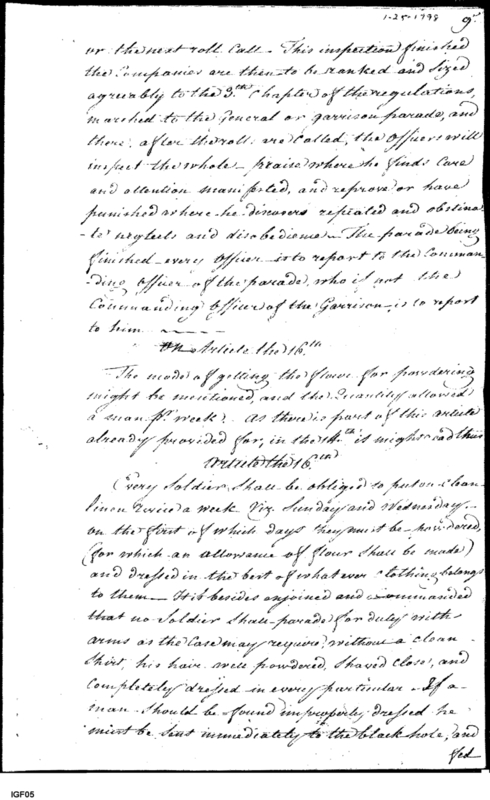 1-25-1798
9
or the next roll call - This inspection finished
the Companies are then to be ranked and sized
agreeably to the 3th Chapter of the regulations,
marched to the General or garrison parade, and
there, after the roll are called, the Officers will
inspect the whole - praise where he finds care
and attention manifested, and reprove or have
punished where he discovers repeated and obstina
-te neglects and disobedience - The parade being
finished - every Officer is to report to the Comman
-ding Officer of the parade, who if not the
Commanding Officer of the Garrison, is to report
to him
On Article the 16th
The mode of getting the flour for powdering
might be mentioned, and the Quantity allowed
a man pr. week. As there is part of this article
already provided for, in the 14th it might read thus
Article the 16th
Every Soldier shall be obliged to put on clean
linen twice a week Viz. Sunday and Wednesday
on the first of which days they must be powdered,
(for which an allowance of flour shall be made)
and dressed in the best of what ever clothing belongs
to them - It is besides enjoined and commanded
that no Soldier shall parade for duty with
arms as the Case may require, without a clean
shirt, his hair well powdered, shaved close, and
completely dressed in every particular - If a
man should be found improperly dressed he
must be sent immediately to the black hole, and
fed
IGF05